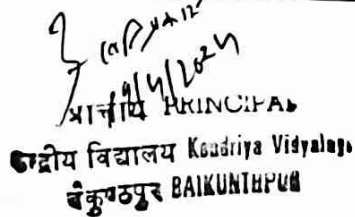 9/4/2024
प्राचार्य PRINCIPAL
केन्द्रीय विद्यालय Kendriya Vidyalaya
बैकुण्ठपुर BAIKUNTHPUR